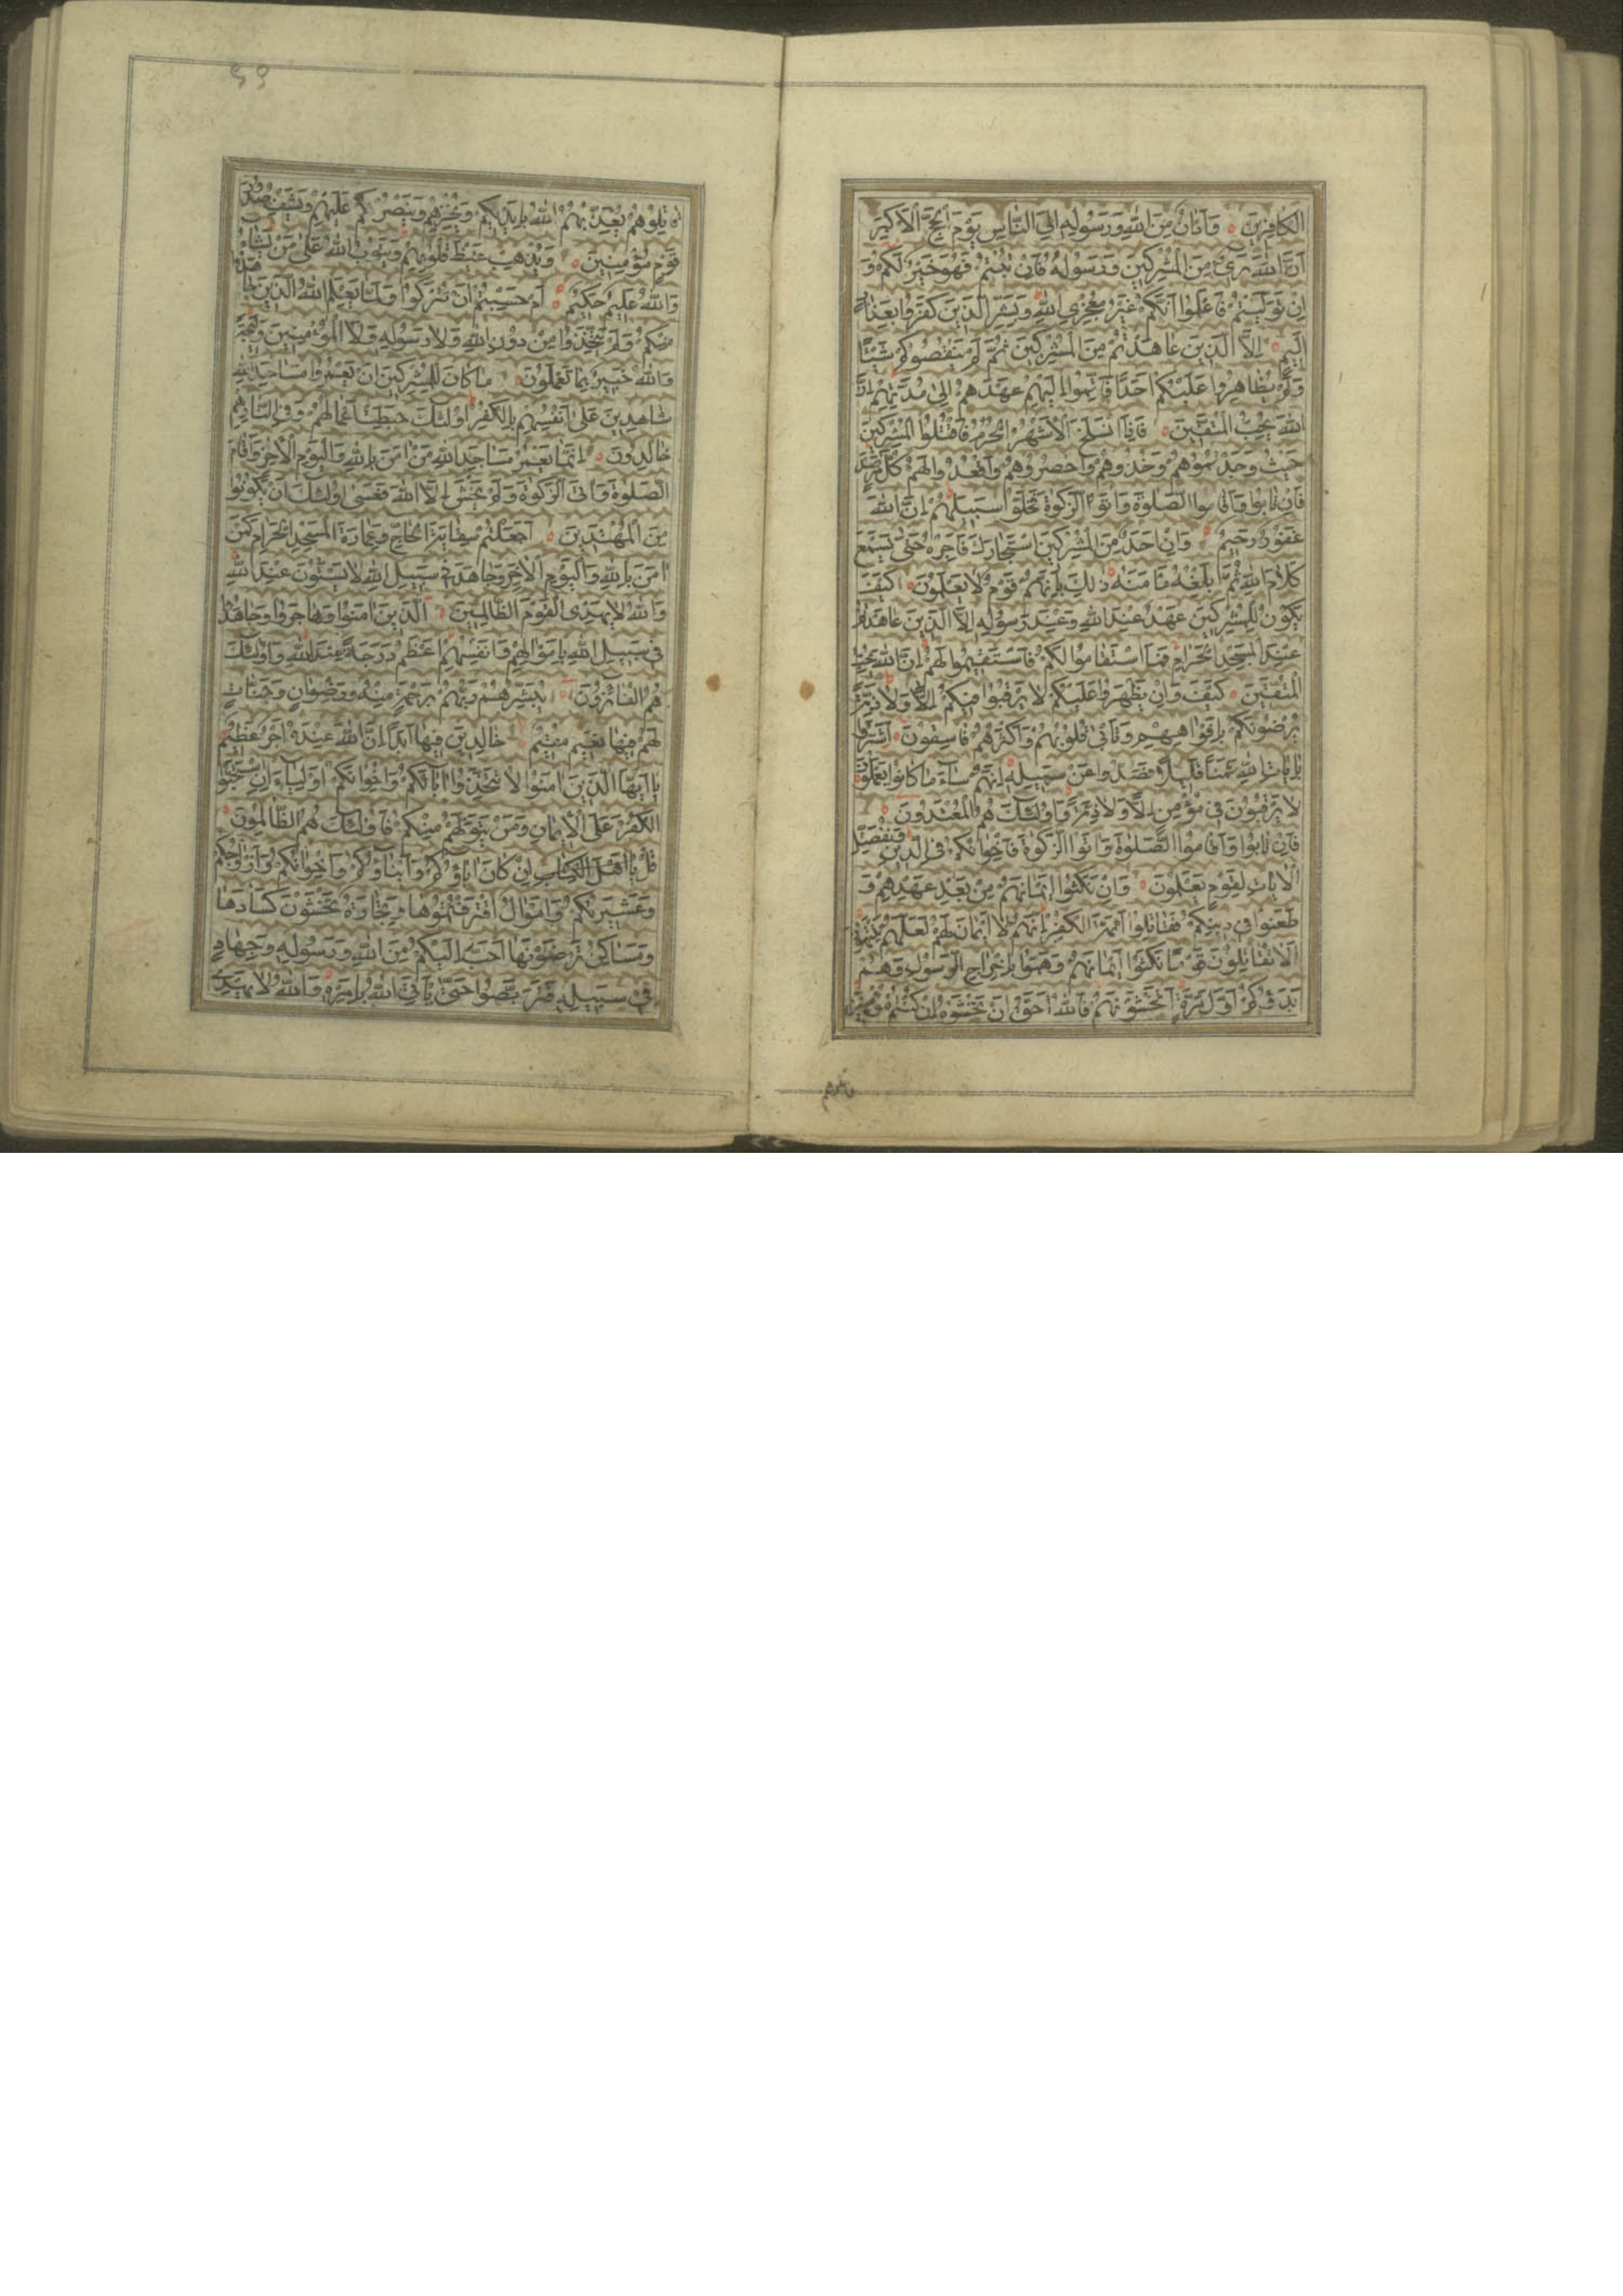 الكافرين وَاَذانٌ مِنَ اللهِ وَرَسُولِهِ اِلَى النَّاسِ يَوْمَ الْحَجِّ الْاَكْبَرِ
اَنَّ اللهَ بَرئٌ مِنَ الْمُشْرِكينَ وَرَسُولُهُ فَاِنْ تُبْتُمْ فَهُوَ خَيْرٌ لَكُمْ وَ
اِنْ تَوَلَّيْتُمْ فَاعْلَمُوا اَنَّكُمْ غَيْرُ مُعْجِزِى اللهِ وَبَشِّرِ الَّذينَ كَفَرُوا بِعَذابٍ
اَليمٍ اِلَّا الَّذينَ عاهَدْتُمْ مِنَ الْمُشْرِكينَ ثُمَّ لَمْ يَنْقُصُوكُمْ شَيْئًا
وَلَمْ يُظاهِرُوا عَلَيْكُمْ اَحَدًا فَاَتِمُّوا اِلَيْهِمْ عَهْدَهُمْ اِلى مُدَّتِهِمْ اِنَّ
اللهَ يُحِبُّ الْمُتَّقينَ فَاِذَا انْسَلَخَ الْاَشْهُرُ الْحُرُمُ فَاقْتُلُوا الْمُشْرِكينَ
حَيْثُ وَجَدْتُمُوهُمْ وَخُذُوهُمْ وَاحْصُرُوهُمْ وَاقْعُدُوا لَهُمْ كُلَّ مَرْصَدٍ
فَاِنْ تابُوا وَاَقامُوا الصَّلوةَ وَاتَوُا الزَّكوةَ فَخَلُّوا سَبيلَهُمْ اِنَّ اللهَ
غَفُورٌ رَحيمٌ وَاِنْ اَحَدٌ مِنَ الْمُشْرِكينَ اسْتَجارَكَ فَاَجِرْهُ حَتّى يَسْمَعَ
كَلامَ اللهِ ثُمَّ اَبْلِغْهُ مَأْمَنَهُ ذلِكَ بِاَنَّهُمْ قَوْمٌ لا يَعْلَمُونَ كَيْفَ
يَكُونُ لِلْمُشْرِكينَ عَهْدٌ عِنْدَ اللهِ وَعِنْدَ رَسُولِهِ اِلَّا الَّذينَ عاهَدْتُمْ
عِنْدَ الْمَسْجِدِ الْحَرامِ فَمَا اسْتَقامُوا لَكُمْ فَاسْتَقيمُوا لَهُمْ اِنَّ اللهَ يُحِبُّ
الْمُتَّقينَ كَيْفَ وَاِنْ يَظْهَرُوا عَلَيْكُمْ لا يَرْقُبُوا فيكُمْ اِلًّا وَلا ذِمَّةً
يُرْضُونَكُمْ بِاَفْواهِهِمْ وَتَأْبى قُلُوبُهُمْ وَاَكْثَرُهُمْ فاسِقُونَ اِشْتَرَوْا
بِاياتِ اللهِ ثَمَنًا قَليلًا فَصَدُّوا عَنْ سَبيلِهِ اِنَّهُمْ ساءَ ما كانُوا يَعْمَلُونَ
لا يَرْقُبُونَ فى مُؤْمِنٍ اِلًّا وَلا ذِمَّةً وَاُولئِكَ هُمُ الْمُعْتَدُونَ
فَاِنْ تابُوا وَاَقامُوا الصَّلوةَ وَاتَوُا الزَّكوةَ فَاِخْوانُكُمْ فِى الدّينِ وَنُفَصِّلُ
الْاياتِ لِقَوْمٍ يَعْلَمُونَ وَاِنْ نَكَثُوا اَيْمانَهُمْ مِنْ بَعْدِ عَهْدِهِمْ وَ
طَعَنُوا فى دينِكُمْ فَقاتِلُوا اَئِمَّةَ الْكُفْرِ اِنَّهُمْ لا اَيْمانَ لَهُمْ لَعَلَّهُمْ يَنْتَهُونَ
اَلا تُقاتِلُونَ قَوْمًا نَكَثُوا اَيْمانَهُمْ وَهَمُّوا بِاِخْراجِ الرَّسُولِ وَهُمْ
بَدَؤُكُمْ اَوَّلَ مَرَّةٍ اَتَخْشَوْنَهُمْ فَاللهُ اَحَقُّ اَنْ تَخْشَوْهُ اِنْ كُنْتُمْ مُؤْمِنينَ
قاتلوهم
قاتِلُوهُمْ يُعَذِّبْهُمُ اللهُ بِاَيْديكُمْ وَيُخْزِهِمْ وَيَنْصُرْكُمْ عَلَيْهِمْ وَيَشْفِ صُدُورَ
قَوْمٍ مُؤْمِنينَ وَيُذْهِبْ غَيْظَ قُلُوبِهِمْ وَيَتُوبُ اللهُ عَلى مَنْ يَشاءُ
وَاللهُ عَليمٌ حَكيمٌ اَمْ حَسِبْتُمْ اَنْ تُتْرَكُوا وَلَمَّا يَعْلَمِ اللهُ الَّذينَ جاهَدُوا
مِنْكُمْ وَلَمْ يَتَّخِذُوا مِنْ دُونِ اللهِ وَلا رَسُولِهِ وَلَا الْمُؤْمِنينَ وَليجَةً
وَاللهُ خَبيرٌ بِما تَعْمَلُونَ ما كانَ لِلْمُشْرِكينَ اَنْ يَعْمُرُوا مَساجِدَ اللهِ
شاهِدينَ عَلى اَنْفُسِهِمْ بِالْكُفْرِ اُولئِكَ حَبِطَتْ اَعْمالُهُمْ وَفِى النّارِ هُمْ
خالِدُونَ اِنَّما يَعْمُرُ مَساجِدَ اللهِ مَنْ امَنَ بِاللهِ وَالْيَوْمِ الْاخِرِ وَاَقامَ
الصَّلوةَ وَاتَى الزَّكوةَ وَلَمْ يَخْشَ اِلَّا اللهَ فَعَسى اُولئِكَ اَنْ يَكُونُوا
مِنَ الْمُهْتَدينَ اَجَعَلْتُمْ سِقايَةَ الْحاجِّ وَعِمارَةَ الْمَسْجِدِ الْحَرامِ كَمَنْ
امَنَ بِاللهِ وَالْيَوْمِ الْاخِرِ وَجاهَدَ فى سَبيلِ اللهِ لا يَسْتَوُونَ عِنْدَ اللهِ
وَاللهُ لا يَهْدِى الْقَوْمَ الظّالِمينَ اَلَّذينَ امَنُوا وَهاجَرُوا وَجاهَدُوا
فى سَبيلِ اللهِ بِاَمْوالِهِمْ وَاَنْفُسِهِمْ اَعْظَمُ دَرَجَةً عِنْدَ اللهِ وَاُولئِكَ
هُمُ الْفائِزُونَ يُبَشِّرُهُمْ رَبُّهُمْ بِرَحْمَةٍ مِنْهُ وَرِضْوانٍ وَجَنّاتٍ
لَهُمْ فيها نَعيمٌ مُقيمٌ خالِدينَ فيها اَبَدًا اِنَّ اللهَ عِنْدَهُ اَجْرٌ عَظيمٌ
يا اَيُّهَا الَّذينَ امَنُوا لا تَتَّخِذُوا اباءَكُمْ وَاِخْوانَكُمْ اَوْلِياءَ اِنِ اسْتَحَبُّوا
الْكُفْرَ عَلَى الْايمانِ وَمَنْ يَتَوَلَّهُمْ مِنْكُمْ فَاُولئِكَ هُمُ الظّالِمُونَ
قُلْ يا اَهْلَ الْكِتابِ اِنْ كانَ اباؤُكُمْ وَاَبْناؤُكُمْ وَاِخْوانُكُمْ وَاَزْواجُكُمْ
وَعَشيرَتُكُمْ وَاَمْوالٌ اقْتَرَفْتُمُوها وَتِجارَةٌ تَخْشَوْنَ كَسادَها
وَمَساكِنُ تَرْضَوْنَها اَحَبَّ اِلَيْكُمْ مِنَ اللهِ وَرَسُولِهِ وَجِهادٍ
فى سَبيلِهِ فَتَرَبَّصُوا حَتّى يَأْتِىَ اللهُ بِاَمْرِهِ وَاللهُ لا يَهْدِى